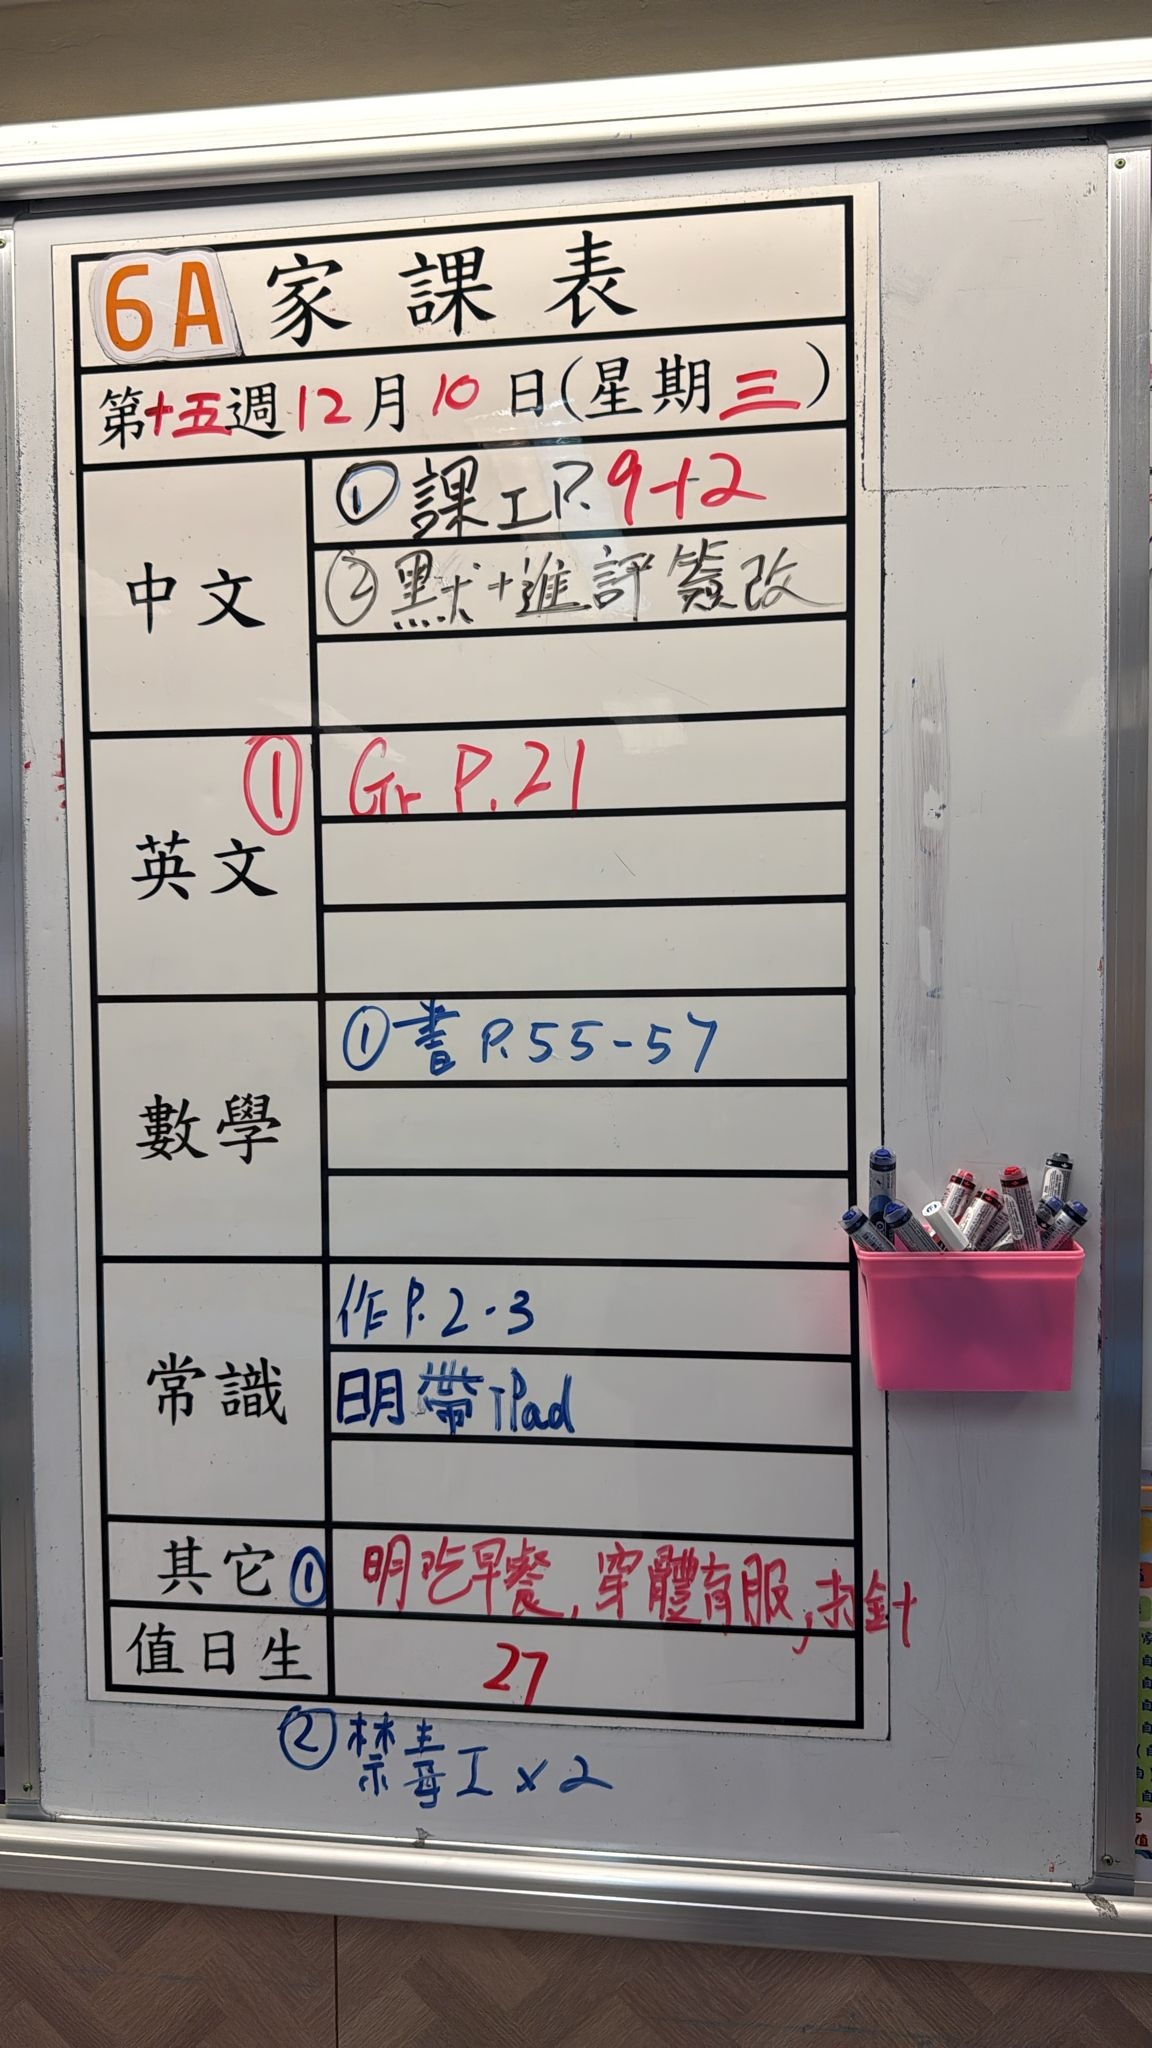 6A 家課表
第十五週12月10日(星期三)
中文
① 課工P.9+2
② 默+進評簽改
英文
① Gr P.21
數學
① 書 P.55-57
常識
作P.2-3
明帶iPad
其它
① 明吃早餐, 穿體育服, 打針
值日生
27
② 禁毒工x2